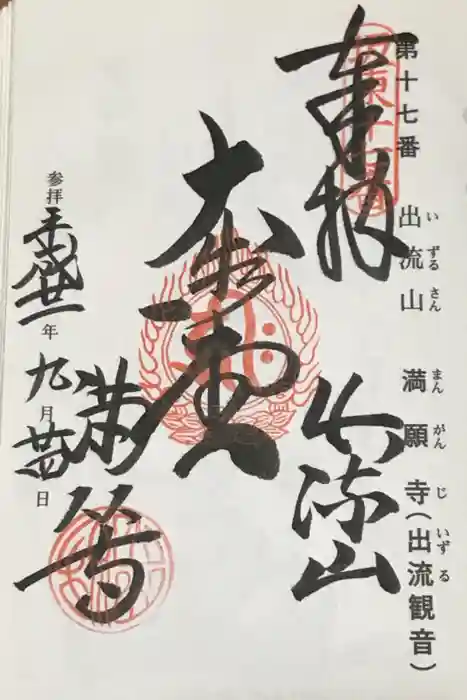 第十七番 出流山 満願寺(出流観音)
い ずる さん まん がん じ いず る
奉拝 出流山
大悲堂
満寺
参拝 平成廿一年九月廿四日